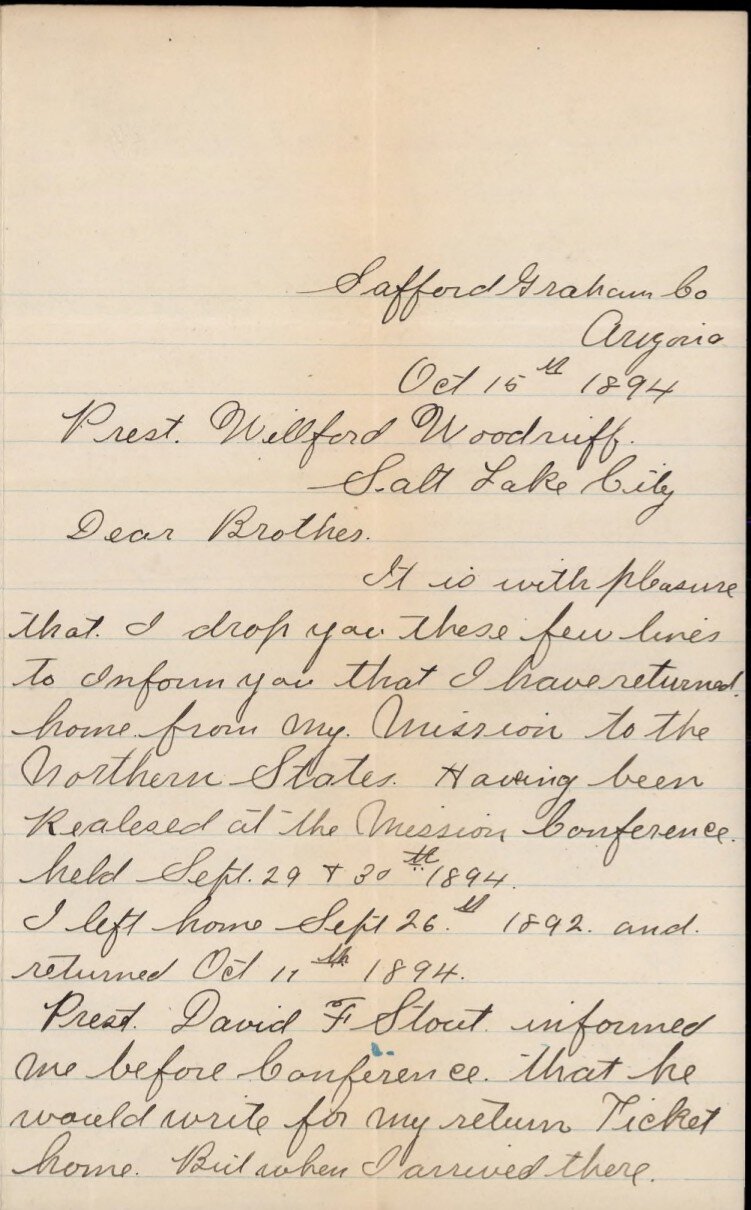 Safford Graham Co
Arizona
Oct 15th 1894
Prest. Willford Woodruff.
Salt Lake City
Dear Brother.
It is with pleasure
that. I drop you these few lines
to Inform you that I have returned.
home from my. Mission to the
Northern States. Having been
Realesed at the Mission Conference.
held Sept. 29 & 30th 1894.
I left home Sept 26.th 1892. and.
returned Oct 11th 1894.
Prest. David F Stout. informed
me before Conference. that he
would write for my return Ticket
home. But when I arrived there.